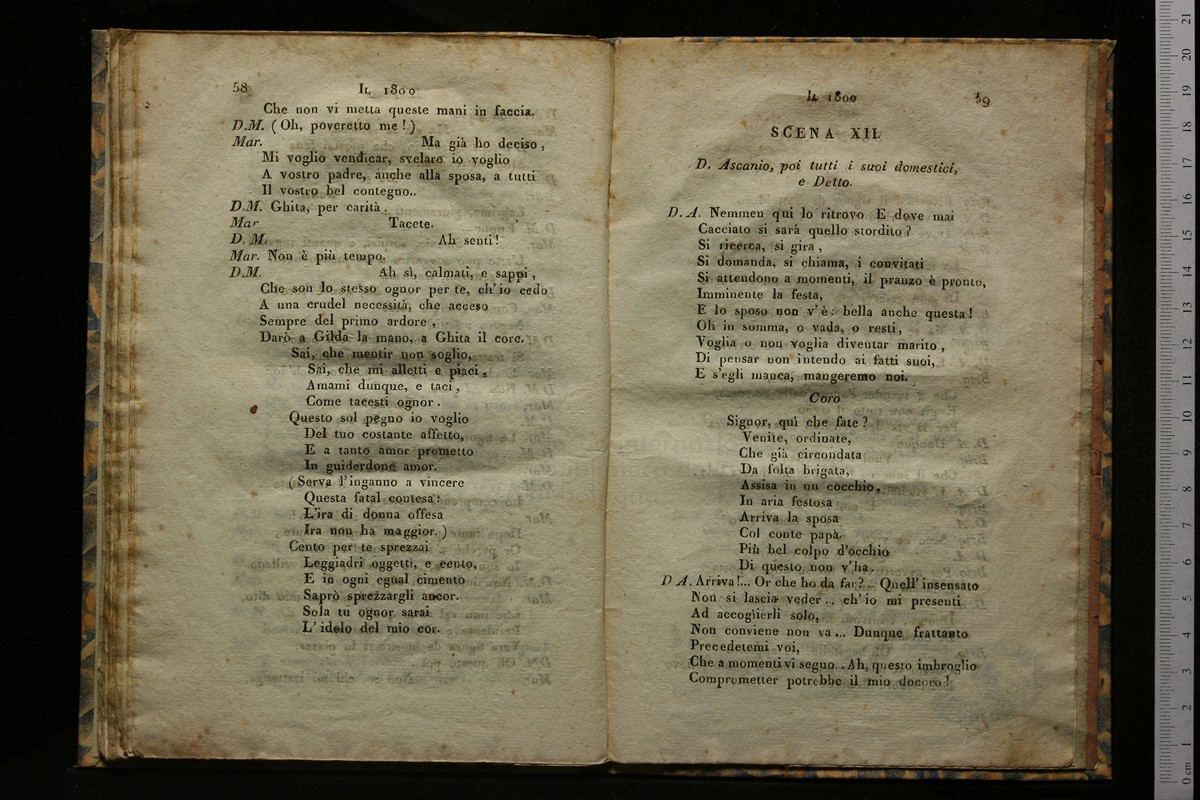 58
IL 1800
Che non vi metta queste mani in faccia.
D.M. (Oh, poveretto me!)
Mar. Ma già ho deciso,
Mi voglio vendicar, svelare io voglio
A vostro padre, anche alla sposa, a tutti
Il vostro bel contegno..
D.M. Ghita, per carità.
Mar Tacete.
D. M. Ah senti!
Mar. Non è più tempo.
D.M. Ah sì, calmati, e sappi,
Che son lo stesso ognor per te, ch'io cedo
A una crudel necessità, che acceso
Sempre del primo ardore,
Darò a Gilda la mano, a Ghita il core.
Sai, che mentir non soglio,
Sai, che mi alletti e piaci,
Amami dunque, e taci,
Come tacesti ognor.
Questo sol pegno io voglio
Del tuo costante affetto,
E a tanto amor prometto
In guiderdone amor.
(Serva l'inganno a vincere
Questa fatal contesa:
L'ira di donna offesa
Ira non ha maggior.)
Cento per te sprezzai
Leggiadri oggetti, e cento,
E in ogni egual cimento
Saprò sprezzargli ancor.
Sola tu ognor sarai
L'idolo del mio cor.
IL 1800
59
SCENA XII.
D. Ascanio, poi tutti i suoi domestici,
e Detto.
D. A. Nemmen qui lo ritrovo E dove mai
Cacciato si sarà quello stordito?
Si ricerca, si gira,
Si domanda, si chiama, i convitati
Si attendono a momenti, il pranzo è pronto,
Imminente la festa,
E lo sposo non v'è: bella anche questa!
Oh in somma, o vada, o resti,
Voglia o non voglia diventar marito,
Di pensar non intendo ai fatti suoi,
E s'egli manca, mangeremo noi.
Coro
Signor, quì che fate?
Venite, ordinate,
Che già circondata
Da folta brigata,
Assisa in un cocchio,
In aria festosa
Arriva la sposa
Col conte papà.
Più bel colpo d'occhio
Di questo non v'ha.
D A. Arriva!... Or che ho da far?.. Quell'insensato
Non si lascia veder.., ch'io mi presenti
Ad accoglierli solo,
Non conviene non va... Dunque frattanto
Precedetemi voi,
Che a momenti vi seguo.. Ah, questo imbroglio
Comprometter potrebbe il mio decoro!